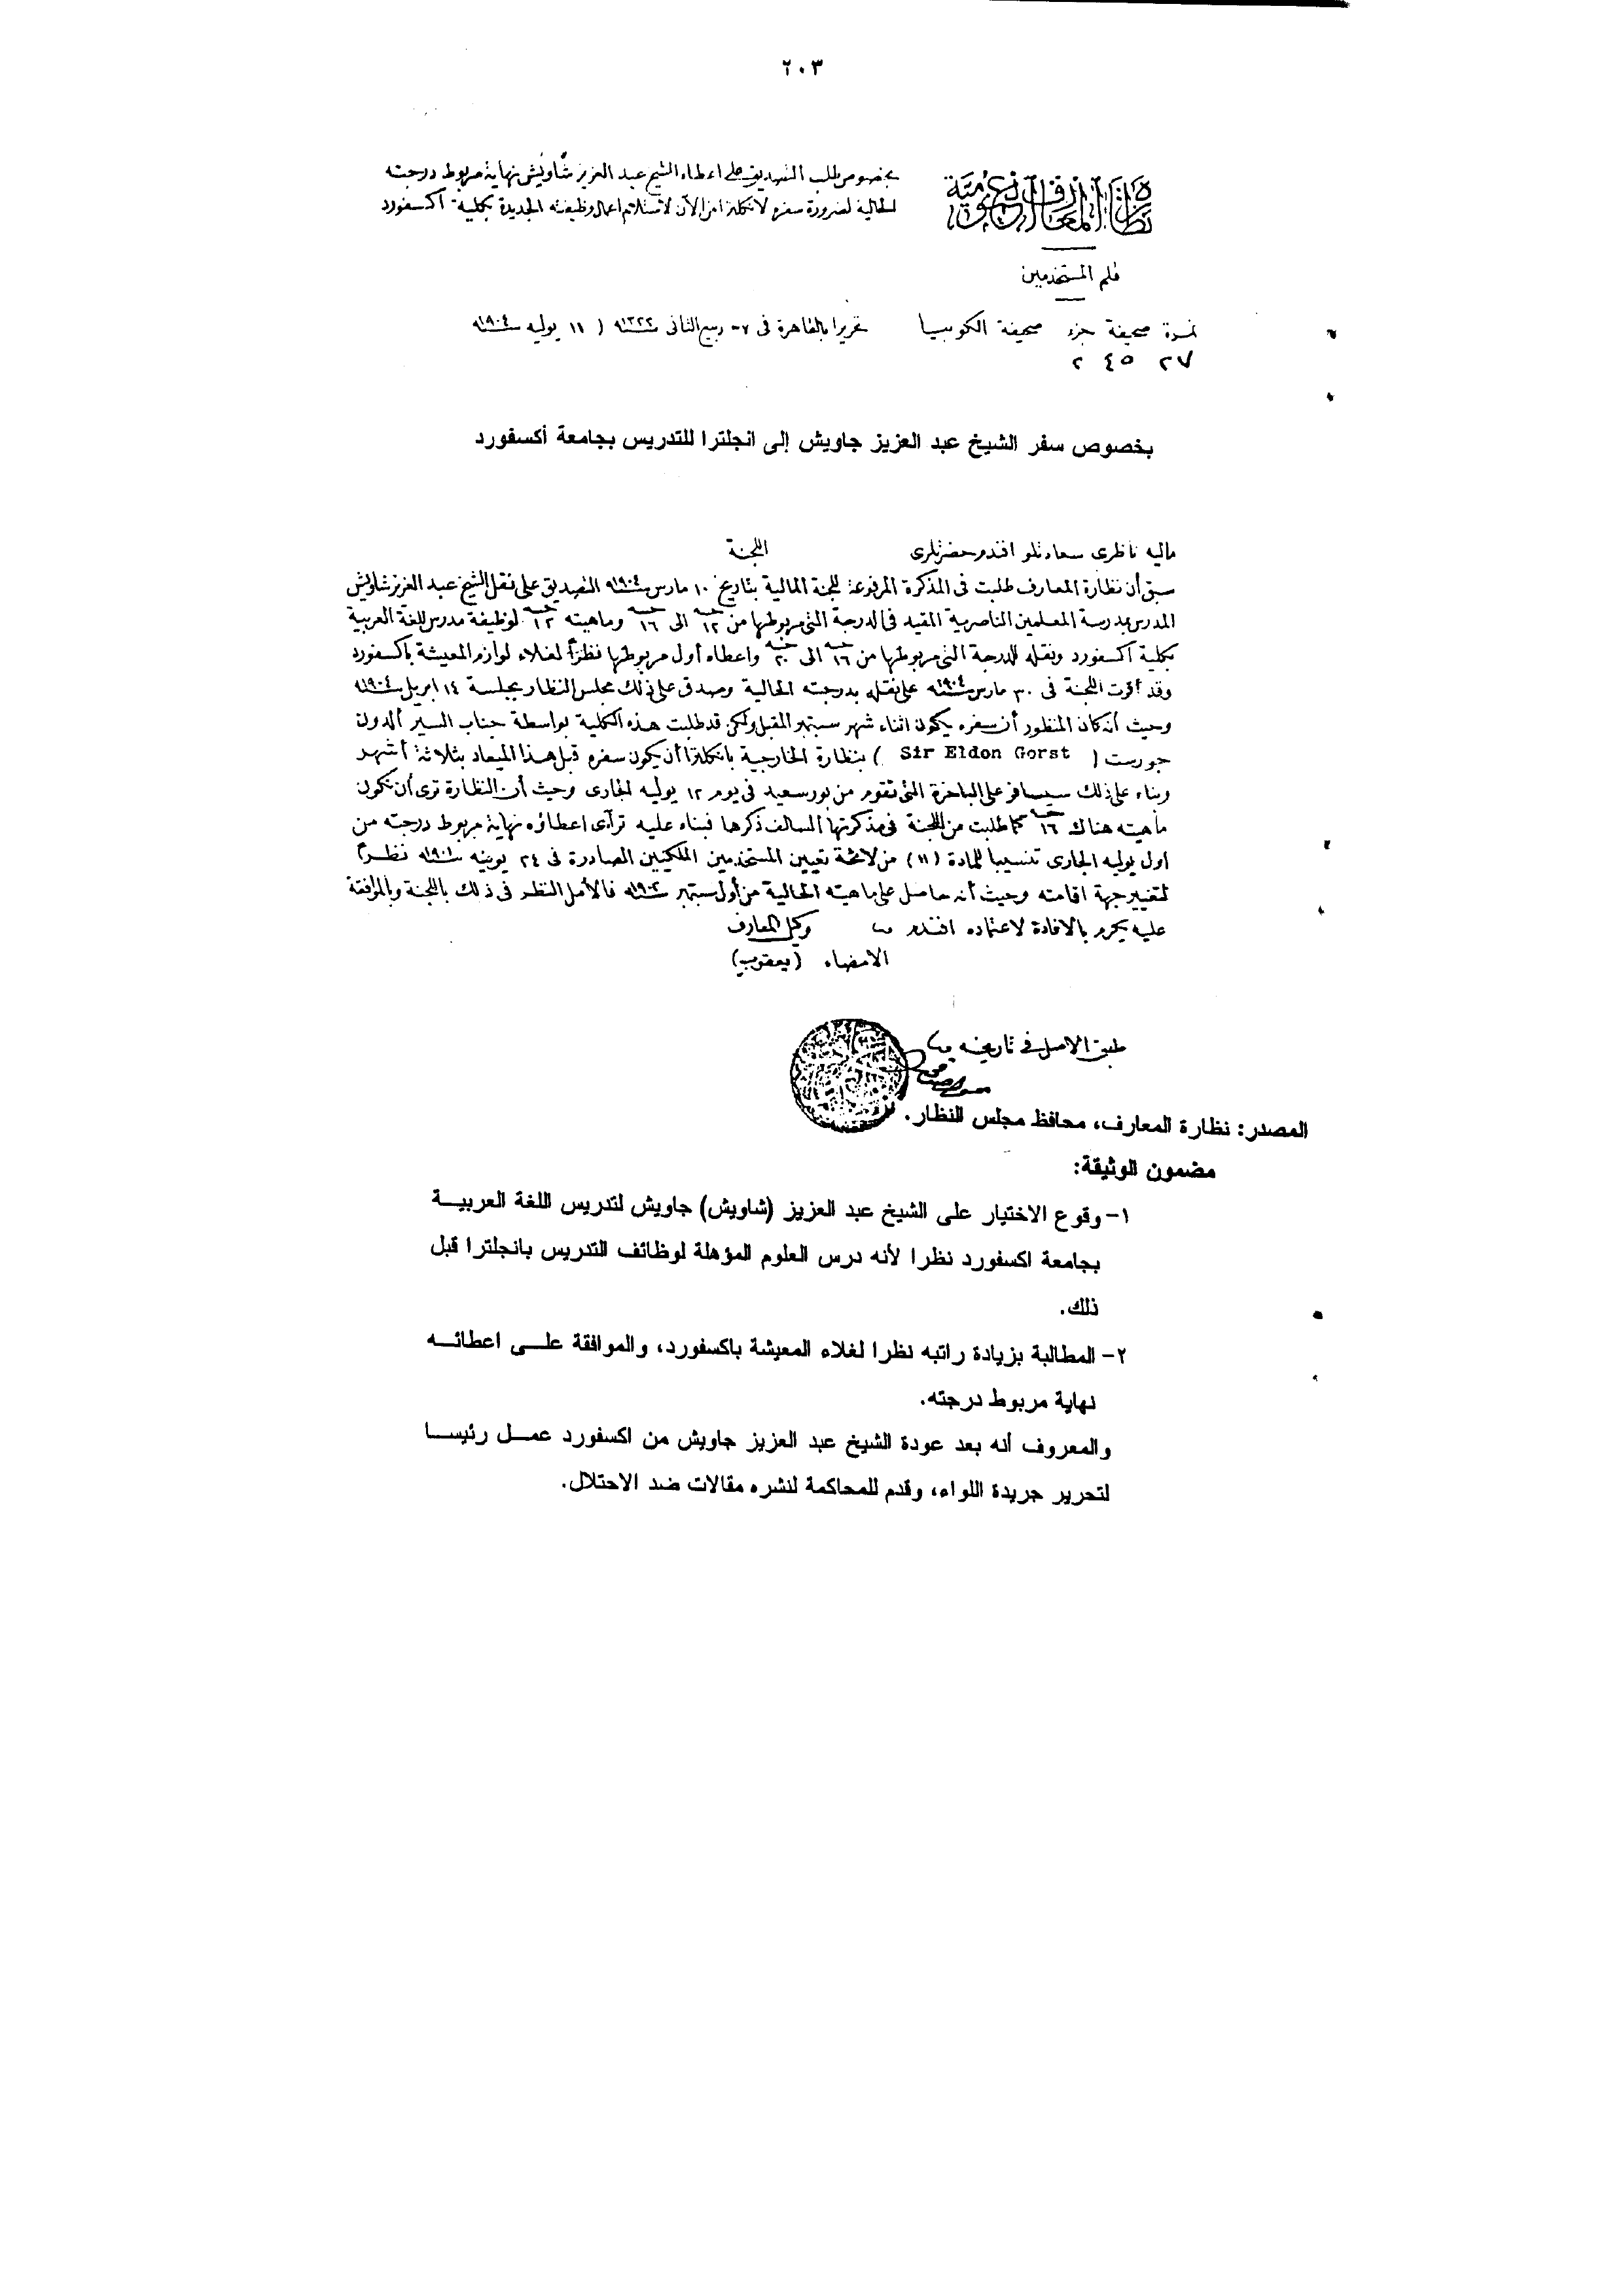 ٢٠٣
بخصوص طلب التصديق على اعطاء الشيخ عبد العزيز شاويش نهاية مربوط درجته
الحالية لضرورة سفره لانكلترا من الآن لاستلام اعمال وظيفته الجديدة بكلية اكسفورد
نظارة المعارف العمومية
قلم المستخدمين
نمرة صحيفة جزء صحيفة الكوبيا تحريرا بالقاهرة فى ٢٧ ربيع الثانى سنة ١٣٢٢ ( ١١ يوليه سنة ١٩٠٤
٢٧ ٤٥ ٢
بخصوص سفر الشيخ عبد العزيز جاويش إلى انجلترا للتدريس بجامعة أكسفورد
ماليه ناظرى سعادتلو افندم حضرتلرى اللجنة
سبق أن نظارة المعارف طلبت فى المذكرة المرفوعة للجنة المالية بتاريخ ١٠ مارس سنة ١٩٠٤ التصديق على نقل الشيخ عبد العزيز شاويش
المدرس بمدرسة المعلمين الناصرية المقيد فى الدرجة التى مربوطها من ١٢ جنيه الى ١٦ جنيه وماهيته ١٢ جنيه لوظيفة مدرس للغة العربية
بكلية اكسفورد ونقله للدرجة التى مربوطها من ١٦ جنيه الى ٢٠ جنيه واعطاه أول مربوطها نظرًا لغلاء لوازم المعيشة باكسفورد
وقد أقرت اللجنة فى ٣٠ مارس سنة ١٩٠٤ على نقله بدرجته الحالية وصدق على ذلك مجلس النظار بجلسة ١٤ ابريل سنة ١٩٠٤
وحيث أنه كان المنظور أن سفره يكون اثناء شهر سبتمبر المقبل ولكن قد طلبت هذه الكلية بواسطة جناب السير ألدون
جورست ( Sir Eldon Gorst ) بنظارة الخارجية بانكلترا أن يكون سفره قبل هذا الميعاد بثلاثة أشهر
وبناء على ذلك سيسافر على الباخرة التى تقوم من بور سعيد فى يوم ١٢ يوليه الجارى وحيث أن النظارة ترى أن تكون
ماهيته هناك ١٦ جنيه كما طلبت من اللجنة فى مذكرتها السالف ذكرها فبناء عليه ترآى اعطاؤه نهاية مربوط درجته من
اول يوليه الجارى تنسيبا للمادة (١١) من لائحة تعيين المستخدمين الملكيين الصادرة فى ٢٤ يونيه سنة ١٩٠١ نظرًا
لتغيير جهة اقامته وحيث أنه حاصل على ماهيته الحالية من أول سبتمبر سنة ١٩٠٢ فالأمل النظر فى ذلك باللجنة وبالموافقة
عليه يكرم بالافادة لاعتماده افندم وكيل المعارف
الامضاء (يعقوب)
طبق الاصل فى تاريخه
المصدر: نظارة المعارف، محافظ مجلس النظار.
مضمون الوثيقة:
١- وقوع الاختيار على الشيخ عبد العزيز (شاويش) جاويش لتدريس اللغة العربية
بجامعة اكسفورد نظرا لأنه درس العلوم المؤهلة لوظائف التدريس بانجلترا قبل
ذلك.
٢- المطالبة بزيادة راتبه نظرا لغلاء المعيشة باكسفورد، والموافقة على اعطائه
نهاية مربوط درجته.
والمعروف أنه بعد عودة الشيخ عبد العزيز جاويش من اكسفورد عمل رئيسا
لتحرير جريدة اللواء، وقدم للمحاكمة لنشره مقالات ضد الاحتلال.